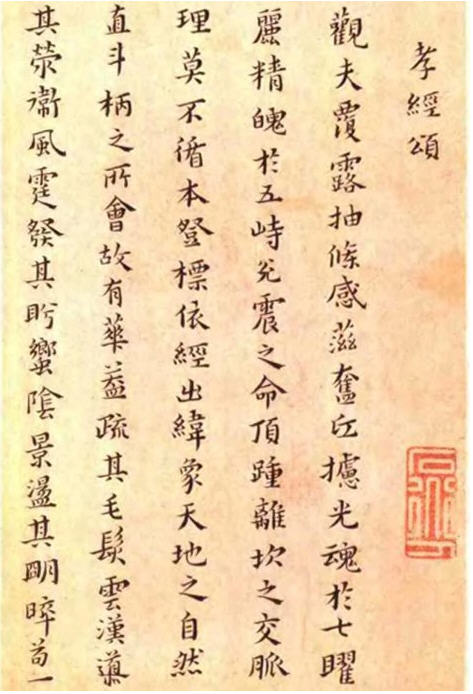 孝經頌
觀夫覆露抽條感滋奮 攄光魂於七曜
麗精魄於五峙兌震之命頂踵離坎之交脈
理莫不循本登標依經出緯象天地之自然
直斗柄之所會故有華蓋疏其毛髮雲漢導
其荣衞風霆發其肸蠁陰景盪其明晬苟一